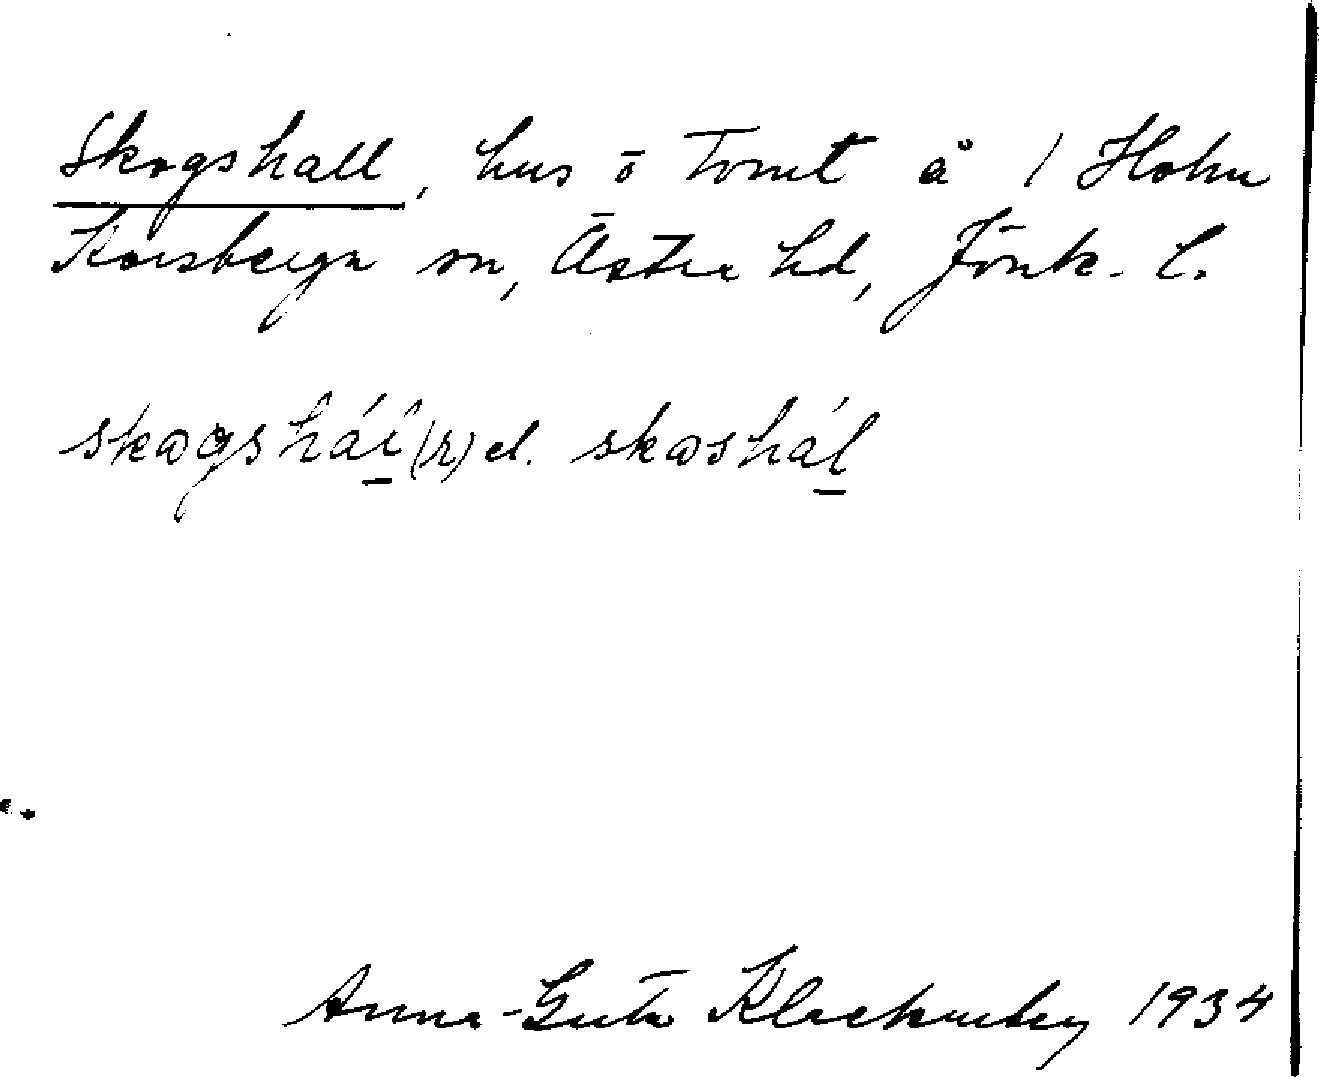 Skogshall, hus o tomt å 1 Holm
Korsberga sn, Östra hd, Jönk. l.
skogshál(n) el. skoshál
Anna-Greta Klockenberg 1934